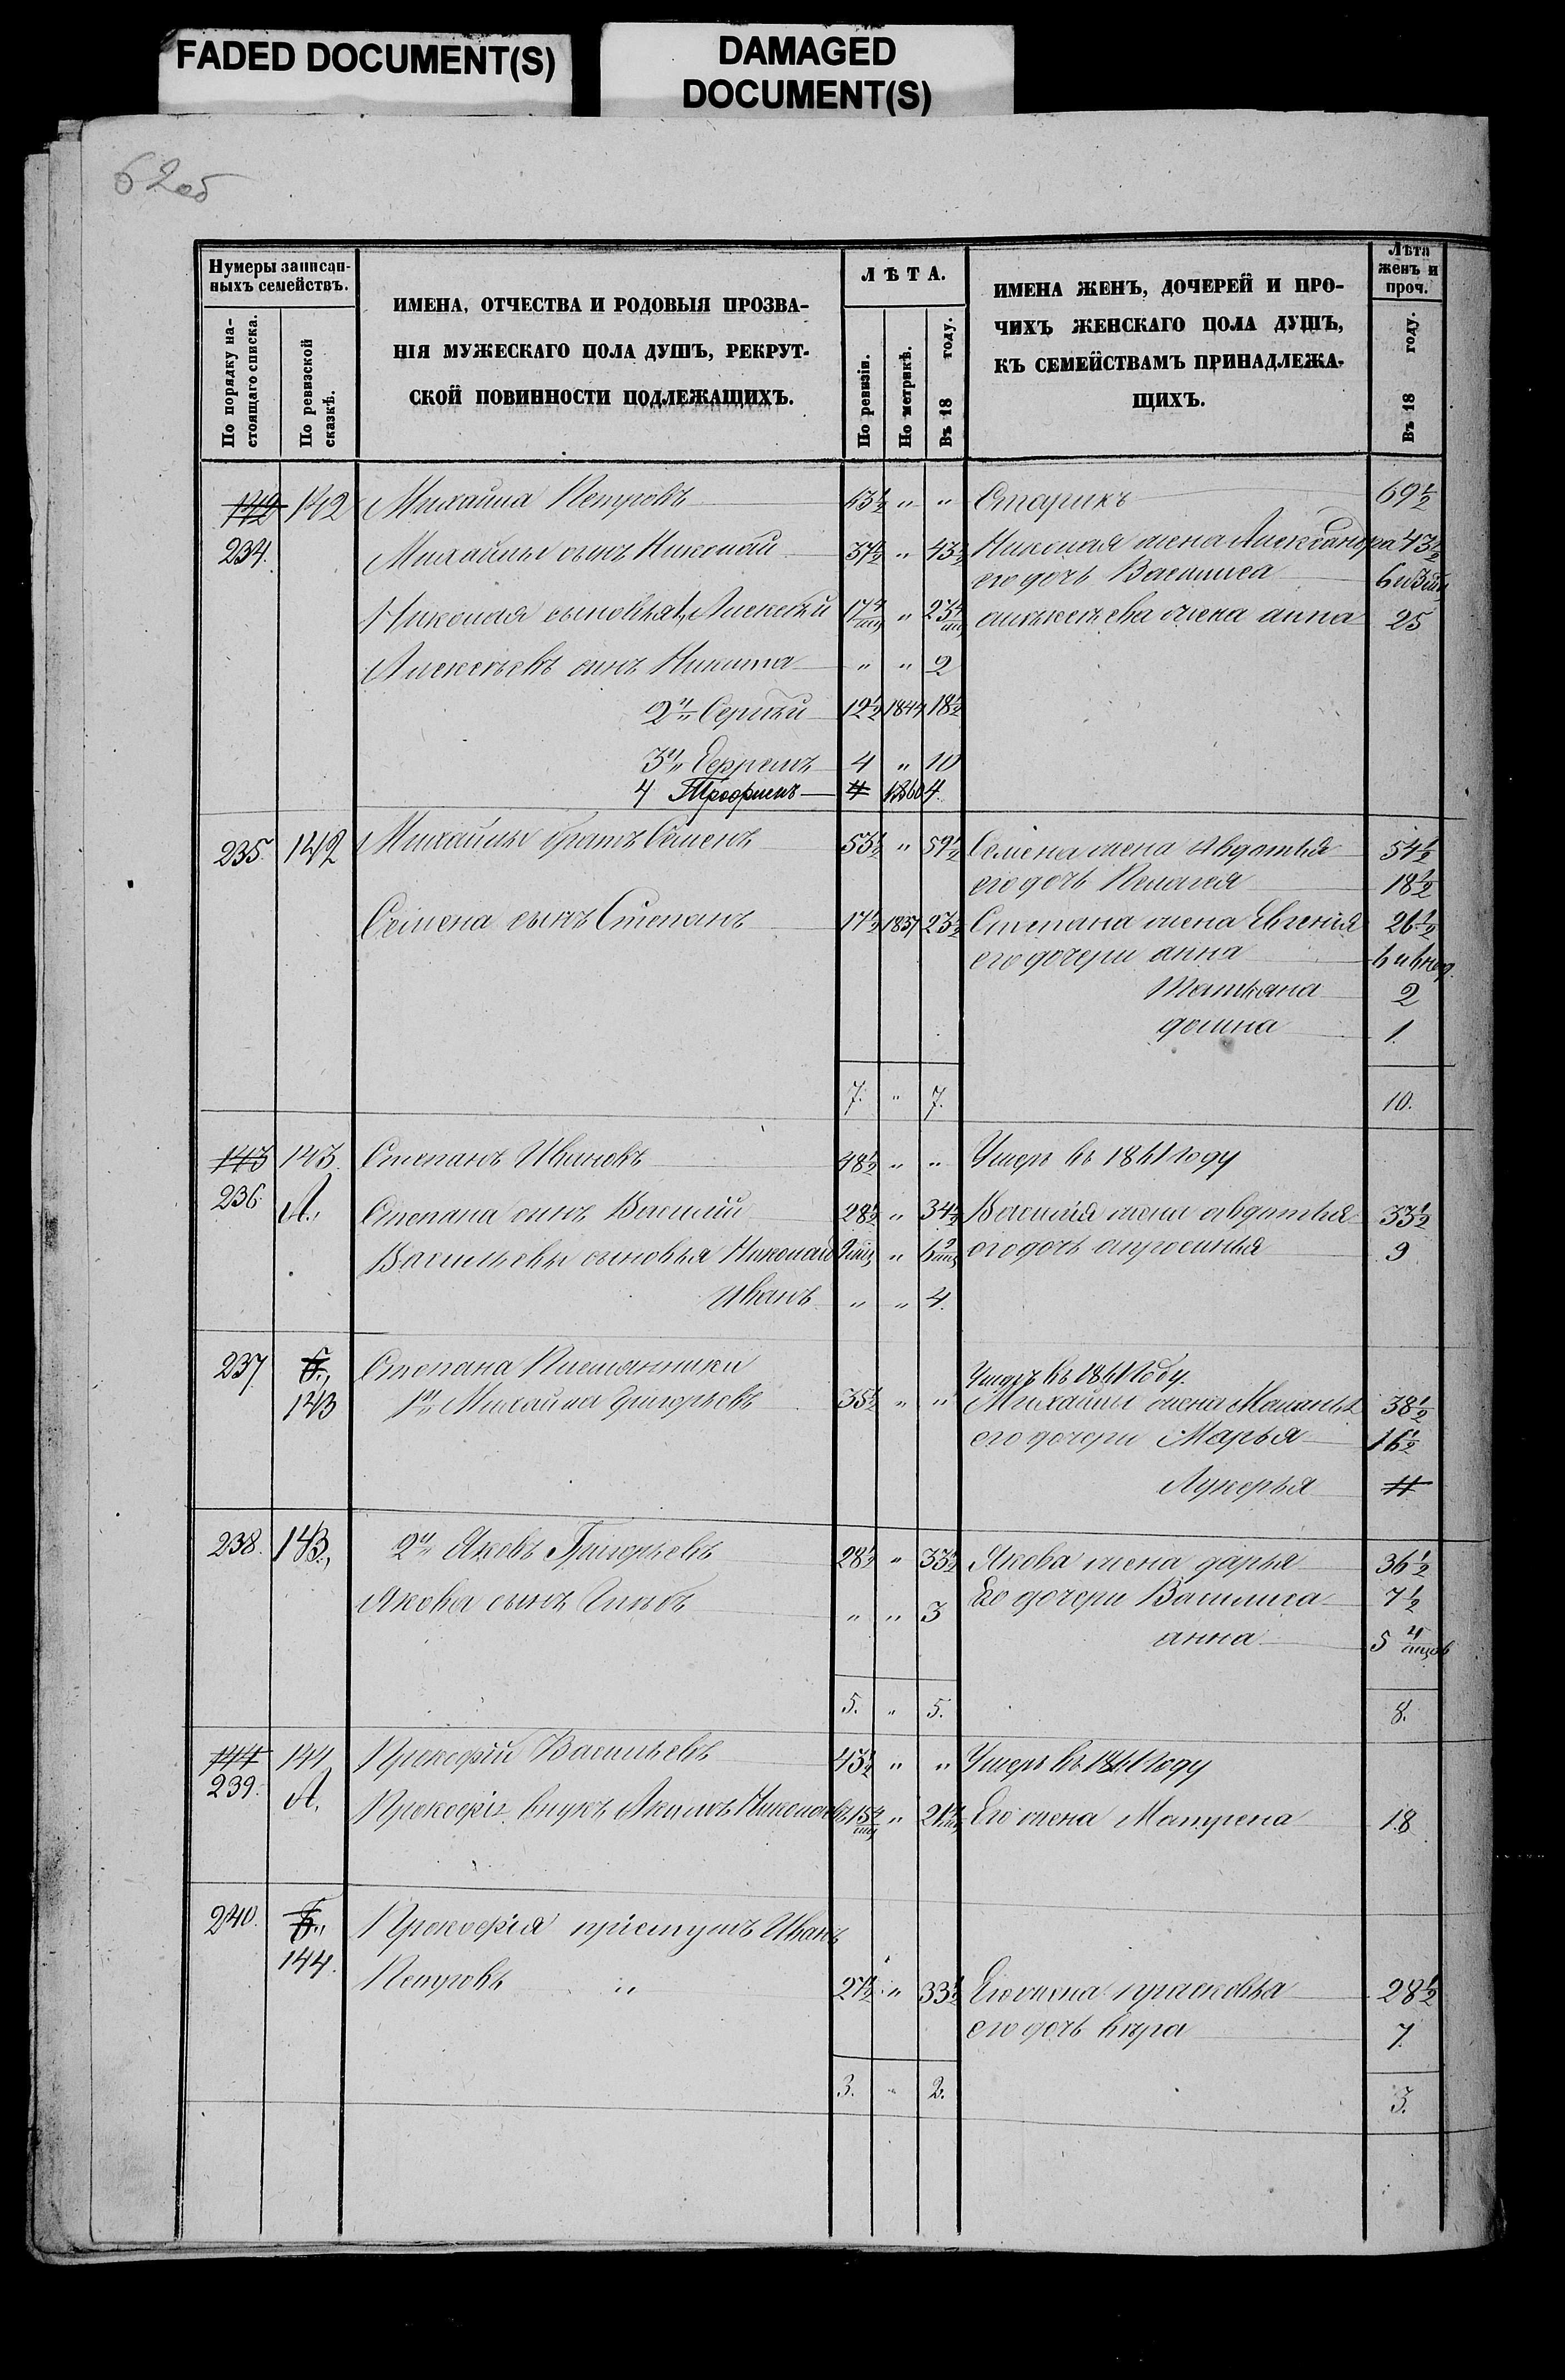 FADED DOCUMENT(S)
DAMAGED
DOCUMENT(S)
62об
Нумеры записан-
ныхъ семействъ.
По порядку на-
стоящаго списка.
По ревизской
сказкѣ.
ИМЕНА, ОТЧЕСТВА И РОДОВЫЯ ПРОЗВА-
НІЯ МУЖЕСКАГО ПОЛА ДУШЪ, РЕКРУТ-
СКОЙ ПОВИННОСТИ ПОДЛЕЖАЩИХЪ.
ЛѢТА.
По ревизіи.
По метрикѣ.
Въ 18 году.
ИМЕНА ЖЕНЪ, ДОЧЕРЕЙ И ПРО-
ЧИХЪ ЖЕНСКАГО ПОЛА ДУШЪ,
КЪ СЕМЕЙСТВАМЪ ПРИНАДЛЕЖА-
ЩИХЪ.
Лѣта
женъ и
проч.
Въ 18 году.
142 142 Михайла Петровъ " " Старикъ 69½
234. Михайлы сынъ Николай 37½ " 43½ Николая жена Александра 43½
его дочь Василиса
Николая сыновья 1й Алексѣй " алѣксѣева жена анна 25
Алексѣевъ сынъ Никита " " 2
2й Сергѣй 12½ 18½
3й Ефремъ 4 " 10
4 Трофимъ 4 1860 4
235. 142 Михайлы братъ Семенъ 53½ " 59½ Семена жена авдотья 54½
его дочь Пелагея 18½
Семена сынъ Степанъ 17½ 1837 23½ Степана жена Евгенія 26½
его дочери анна
Татьяна 2
домна 1.
7. " 7. 10.
143 143. Степанъ Ивановъ 48½ " " Умеръ въ 1861 году
236. А., Степана сынъ Василій 28½ " 34½ Василія жена авдотья 33½
Васильевы сыновья Николай " его дочь апросинья 9
Иванъ " " 4.
237 Б., Степана Племянники
Умеръ въ 1861 году.
143 1й Михайла Григорьевъ 35½ " " Михайлы жена Маланья 38½
его дочери Марья 16½
Лукерья 11
238. 143., 2й Яковъ Григорьевъ 28½ " 33½ Якова жена дарья 36½
Якова сынъ Глѣбъ " " 3 Его дочери Василиса 7½
анна 5 4 мцовъ
5. " 5. 8.
144 144 Прокофій Васильевъ 43½ " " Умеръ въ 1861 году
239. А. Прокофія внукъ Акимъ Николаевъ " Его жена Матрена 18
240. Б., Прокофія пріемушъ Иванъ
144. Петровъ " 27½ " 33½ Его жена прасковья 28½
его дочь вѣра 7.
3. " 2. 3.